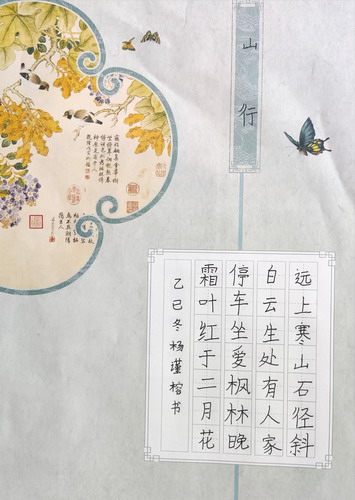 山行
远上寒山石径斜
白云生处有人家
停车坐爱枫林晚
霜叶红于二月花
乙巳冬杨瑾榕书